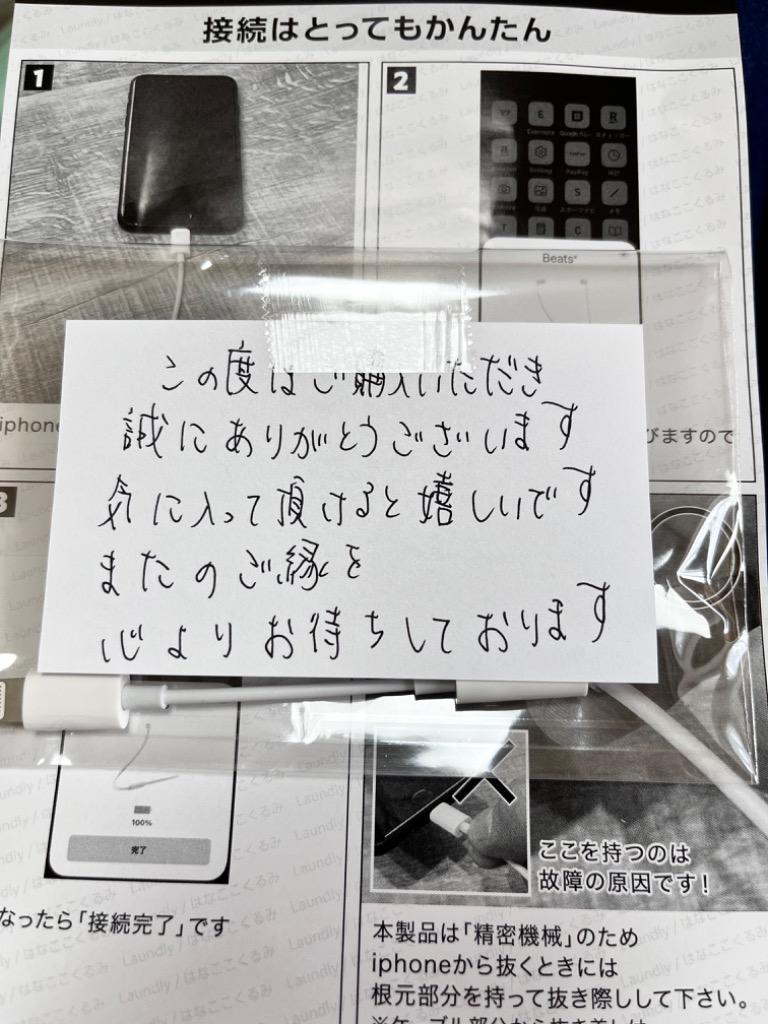 接続はとってもかんたん
1
2
Evernote
Setting
PayPay
メモ
Beats
iphone
びますので
この度はご購入いただき
誠にありがとうございます
気に入って頂けると嬉しいです
またのご縁を
心よりお待ちしております
3
100%
完了
なったら「接続完了」です
ここを持つのは
故障の原因です!
本製品は「精密機械」のため
iphoneから抜くときには
根元部分を持って抜き際しして下さい。
Laundly / はなここくるみ